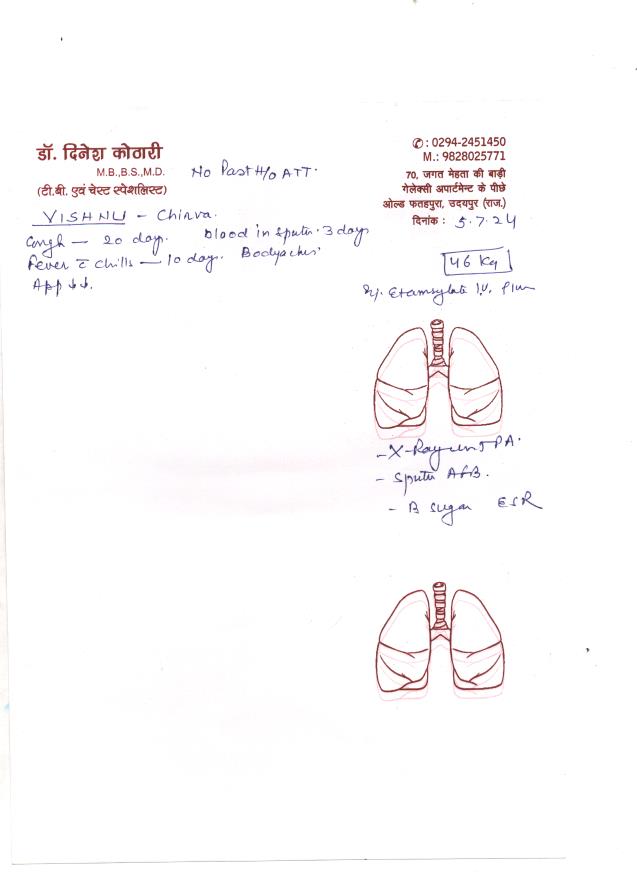 डॉ. दिनेश कोठारी
M.B.,B.S.,M.D.
(टी.बी. एवं चेस्ट स्पेशलिस्ट)
✆ : 0294-2451450
M.: 9828025771
70, जगत मेहता की बाड़ी
गेलेक्सी अपार्टमेन्ट के पीछे
ओल्ड फतहपुरा, उदयपुर (राज.)
दिनांक : 5.7.24
No Past H/o ATT.
VISHNU - Chirva.
Cough — 20 day. Blood in Sputum. 3 days
Fever c̄ chills — 10 day. Bodyaches
App ↓↓.
46 Kg
Inj. Etamsylate I.V.
- X-Ray PA.
- Sputum AFB.
- B Sugar ESR